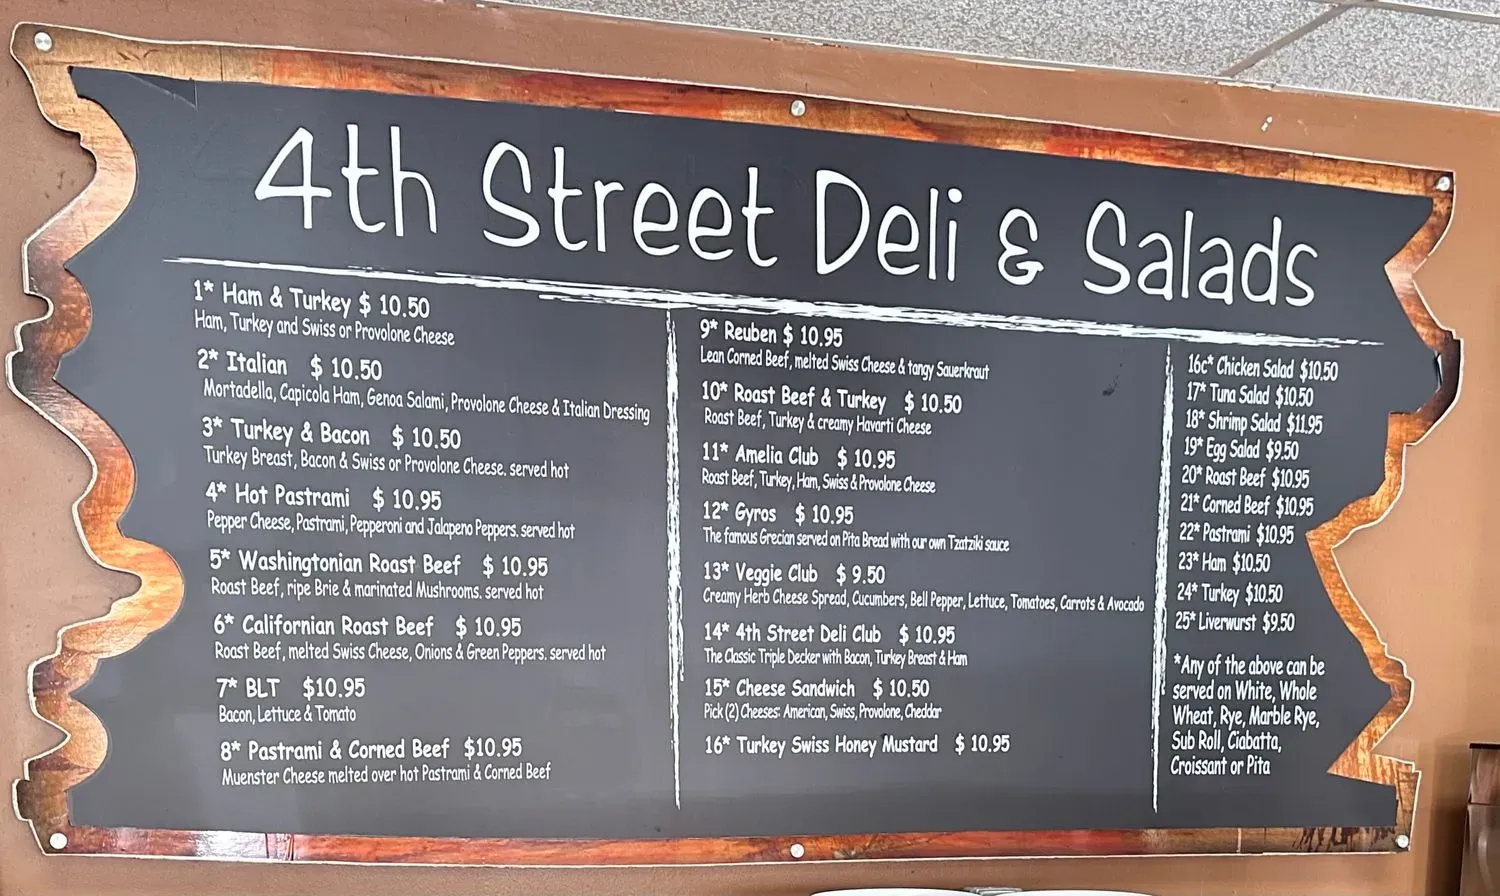 4th Street Deli & Salads
1* Ham & Turkey $ 10.50
Ham, Turkey and Swiss or Provolone Cheese
2* Italian $ 10.50
Mortadella, Capicola Ham, Genoa Salami, Provolone Cheese & Italian Dressing
3* Turkey & Bacon $ 10.50
Turkey Breast, Bacon & Swiss or Provolone Cheese. served hot
4* Hot Pastrami $ 10.95
Pepper Cheese, Pastrami, Pepperoni and Jalapeno Peppers. served hot
5* Washingtonian Roast Beef $ 10.95
Roast Beef, ripe Brie & marinated Mushrooms. served hot
6* Californian Roast Beef $ 10.95
Roast Beef, melted Swiss Cheese, Onions & Green Peppers. served hot
7* BLT $10.95
Bacon, Lettuce & Tomato
8* Pastrami & Corned Beef $10.95
Muenster Cheese melted over hot Pastrami & Corned Beef
9* Reuben $ 10.95
Lean Corned Beef, melted Swiss Cheese & tangy Sauerkraut
10* Roast Beef & Turkey $ 10.50
Roast Beef, Turkey & creamy Havarti Cheese
11* Amelia Club $ 10.95
Roast Beef, Turkey, Ham, Swiss & Provolone Cheese
12* Gyros $ 10.95
The famous Grecian served on Pita Bread with our own Tzatziki sauce
13* Veggie Club $ 9.50
Creamy Herb Cheese Spread, Cucumbers, Bell Pepper, Lettuce, Tomatoes, Carrots & Avocado
14* 4th Street Deli Club $ 10.95
The Classic Triple Decker with Bacon, Turkey Breast & Ham
15* Cheese Sandwich $ 10.50
Pick (2) Cheeses: American, Swiss, Provolone, Cheddar
16* Turkey Swiss Honey Mustard $ 10.95
16c* Chicken Salad $10.50
17* Tuna Salad $10.50
18* Shrimp Salad $11.95
19* Egg Salad $9.50
20* Roast Beef $10.95
21* Corned Beef $10.95
22* Pastrami $10.95
23* Ham $10.50
24* Turkey $10.50
25* Liverwurst $9.50
*Any of the above can be
served on White, Whole
Wheat, Rye, Marble Rye,
Sub Roll, Ciabatta,
Croissant or Pita